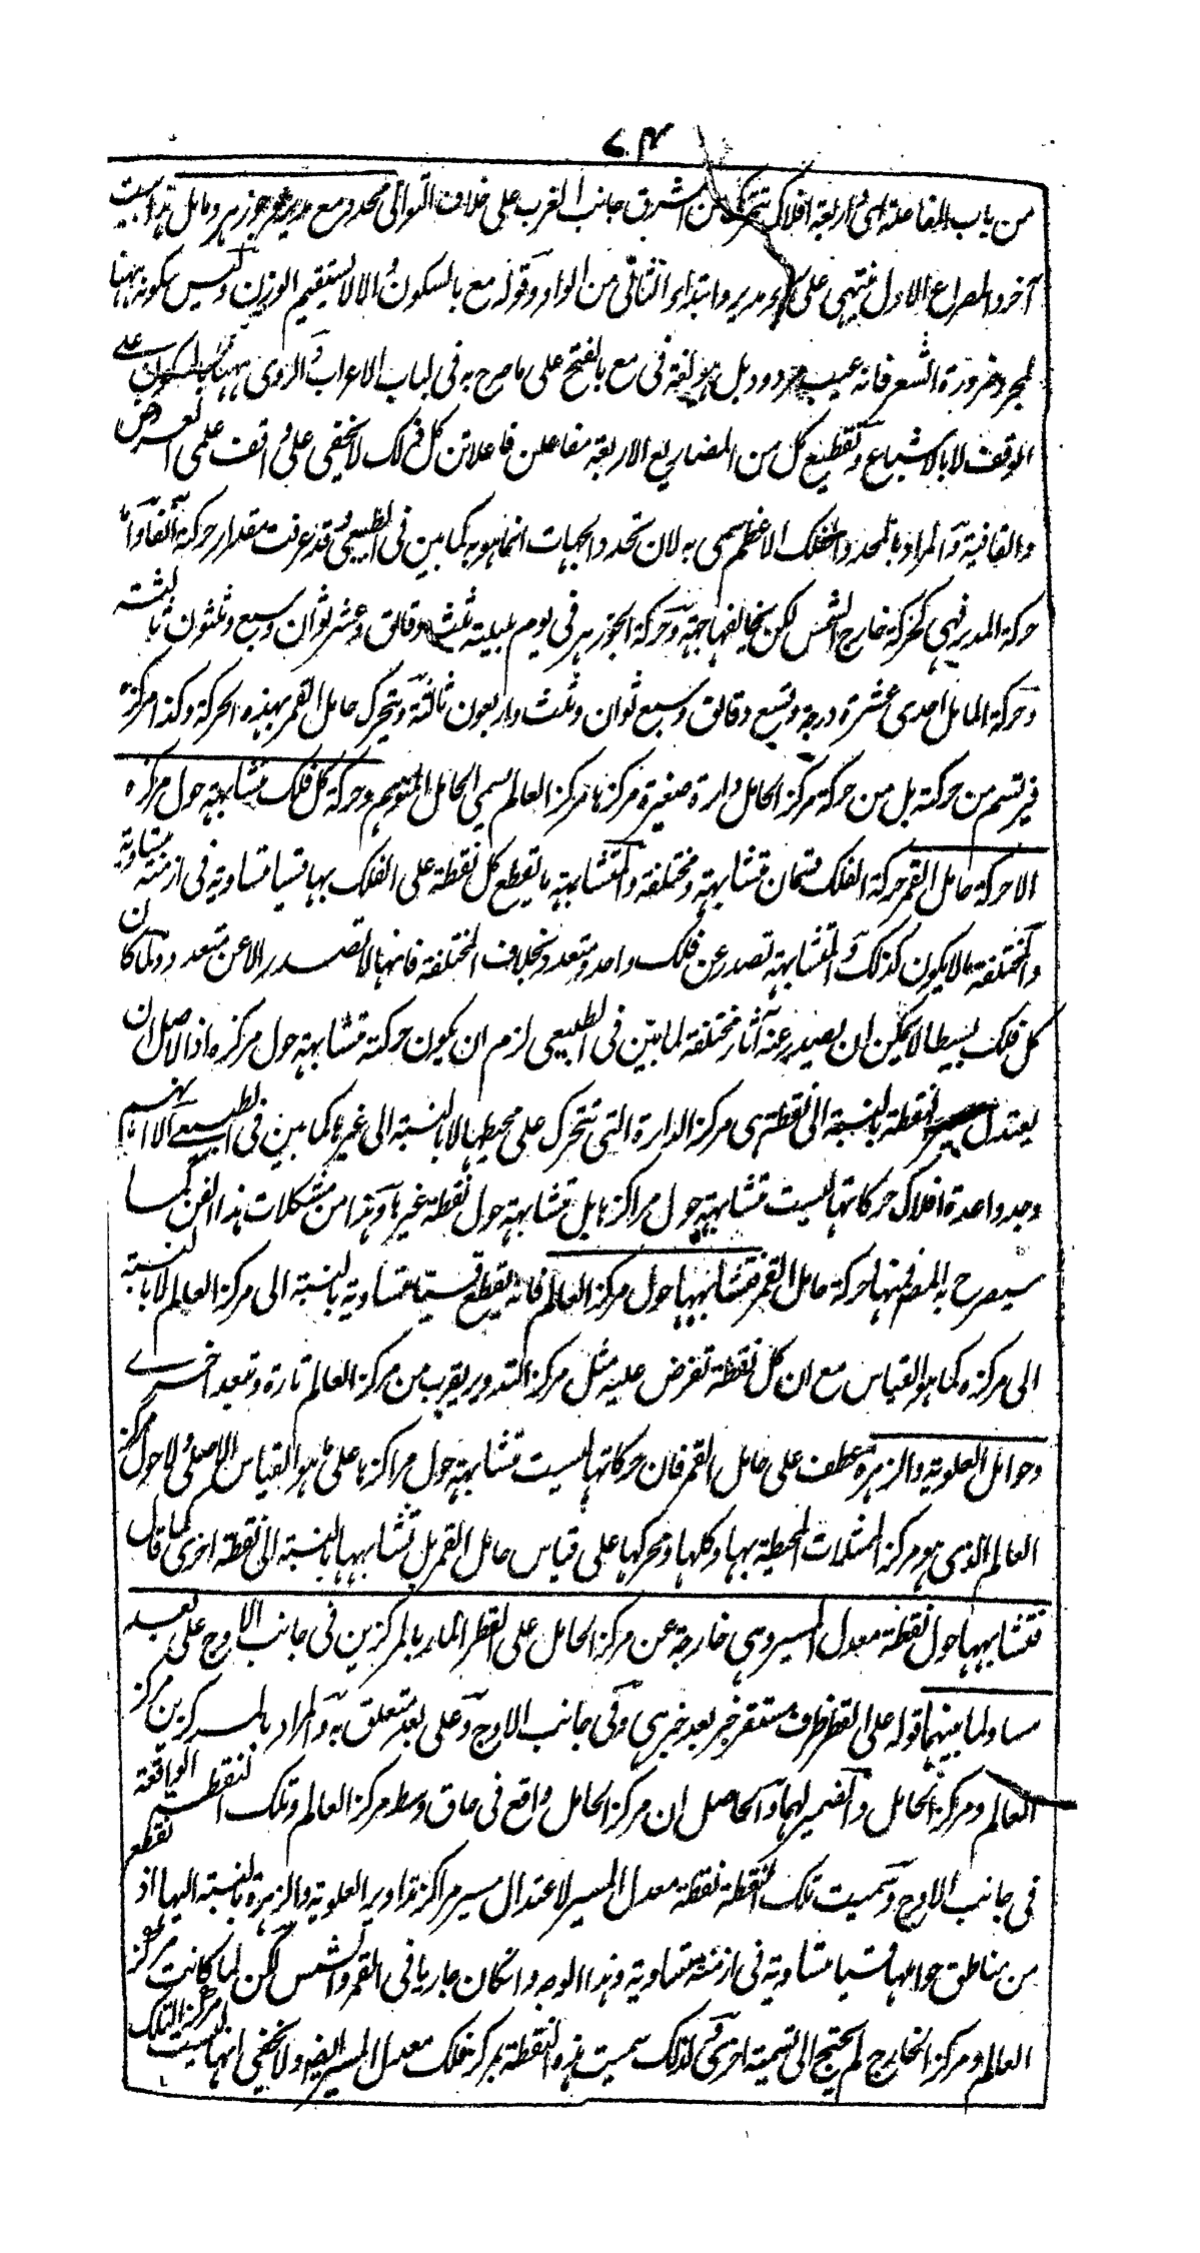 ٧٤
من باب المفاعلة اى اربعة افلاك تتحرك من الشرق جانب الغرب على خلاف التوالى محدد مع مدير جوزهر ومايل هذا بيت
آخر والمصراع الاول ينتهى على مدير وابتداء الثانى من الواو وقوله مع بالسكون والا لا يستقيم الوزن وليس سكونه ههنا
لمجرد ضرورة الشعر فانه عيب مردود بل هو لغة فى مع بالفتح على ما صرح به فى لباب الاعراب والروى ههنا بالسكون على
الوقف لا بالاشباع وتقطيع كل من المصاريع الاربعة مفاعلن فاعلاتن كل ذلك لا يخفى على واقف علمى العروض
والقافية والمراد بالمحدد الفلك الاعظم سمى به لان تحدد الجهات انما هو به كما بين فى الطبيعى وقد عرفت مقدار حركته آنفا واما
حركة المدير فهى كحركة خارج الشمس لكن يخالفها جهة وحركة الجوزهر فى يوم بليلته ثلث دقائق وعشر ثوان وسبع وثلثون ثالثة
وحركة المايل احدى عشرة درجة وتسع دقائق وسبع ثوان وثلث واربعون ثالثة ويتحرك حامل القمر بهذه الحركة وكذا مركزه
فيرتسم من حركته بل من حركة مركز الحامل دائرة صغيرة مركزها مركز العالم يسمى الحامل المتوهم وحركة كل فلك متشابهة حول مركزه
الا حركة حامل القمر حركة الفلك قسمان متشابهة ومختلفة والمتشابهة ما يقطع كل نقطة على الفلك بها قسيا متساوية فى ازمنة متساوية
والمختلفة ما لا يكون كذلك والمتشابهة تصدر عن فلك واحد ومتعدد بخلاف المختلفة فانها لا تصدر الا عن متعدد ولما كان
كل فلك بسيطا لا يمكن ان يصدر عنه آثار مختلفة لما بين فى الطبيعى لزم ان يكون حركته متشابهة حول مركزه اذ الاصل ان
يعتدل سير النقطة بالنسبة الى نقطة هى مركز الدائرة التى تتحرك على محيطها لا بالنسبة الى غيرها كما بين فى الطبيعى الا انهم
وجدوا عدة افلاك حركاتها ليست متشابهة حول مراكزها بل متشابهة حول نقطة غيرها وهذا من مشكلات هذا الفن كما
سيصرح به المصنف منها حركة حامل القمر فتشابهها حول مركز العالم فانه يقطع قسيا متساوية بالنسبة الى مركز العالم لا بالنسبة
الى مركزه كما هو القياس مع ان كل نقطة تفرض عليه مثل مركز التدوير يقرب من مركز العالم تارة وتبعد اخرى
وحوامل العلوية والزهرة عطف على حامل القمر فان حركاتها ليست متشابهة حول مراكزها على ما هو القياس الاصلى ولا حول مركز
العالم الذى هو مركز الممثلات المحيطة بها وكلها ومحركها على قياس حامل القمر بل تشابهها بالنسبة الى نقطة اخرى كما قال
فتشابهها حول نقطة معدل المسير وهى خارجة عن مركز الحامل على القطر المار بالمركزين فى جانب الاوج على بعد
مساو لما بينهما قوله على القطر ظرف مستقر خبر بعد خبر هى وفى جانب الاوج وعلى بعد متعلق به والمراد بالمركزين مركز
العالم ومركز الحامل والضمير لهما والحاصل ان مركز الحامل واقع فى حاق وسط مركز العالم وتلك النقطة الواقعة
فى جانب الاوج وسميت تلك النقطة نقطة معدل المسير لاعتدال مسير مراكز تداوير العلوية والزهرة بالنسبة اليها اذ تقطع
من مناطق حواملها قسيا متساوية فى ازمنة متساوية وهذا الوجه وان كان جاريا فى القمر والشمس لكن لما كانت مركز
العالم ومركز الخارج لم يحتج الى تسمية اخرى ولذلك سميت هذه النقطة بمركز فلك معدل المسير ايضا ولا يخفى انها ليست مركز الفلك